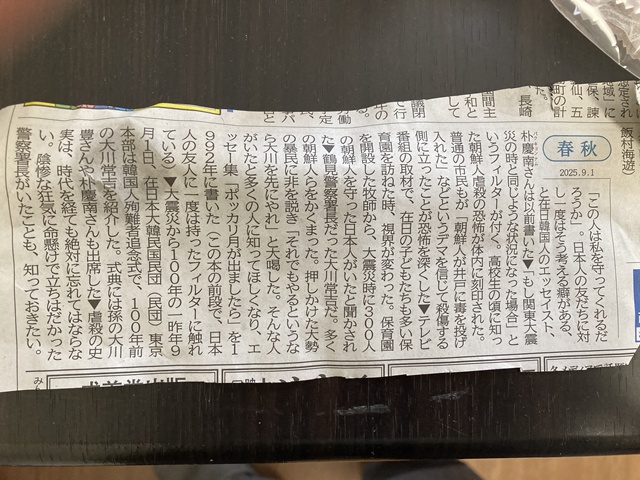 飯村海遊)
春秋
2025.9.1
「この人は私を守ってくれるだ
ろうか」。日本人の友だちに対
し一度はそう考える癖がある、
と在日韓国人のエッセイスト、
朴慶南さんは以前書いた▼「もし関東大震
災の時と同じような状況になった場合」と
いうフィルターが付く。高校生の頃に知っ
た朝鮮人虐殺の恐怖が体内に刻印された。
普通の市民もが「朝鮮人が井戸に毒を投げ
入れた」などというデマを信じて殺傷する
側に立ったことが恐怖を深くした▼テレビ
番組の取材で、在日の子どもたちも多い保
育園を訪ねた時、視界が変わった。保育園
を開設した牧師から、大震災時に300人
の朝鮮人を守った日本人がいたと聞かされ
た▼鶴見警察署長だった大川常吉だ。多く
の朝鮮人らをかくまう。押しかけた大勢
の暴民に非を説き「それでもやるというな
ら大川を先にやれ」と大喝した。そんな人
がいたと多くの人に知ってほしくなり、エ
ッセー集「ポッカリ月が出ましたら」を1
992年に書いた(この本の前段で、日本
人の友人に一度は持ったフィルターに触れ
ている)▼大震災から100年の一昨年9
月1日、在日本大韓民国民団(民団)東京
本部は韓国人殉難者追念式で、100年前
の大川常吉を紹介した。式典には孫の大川
豊さんや朴慶南さんも出席した▼虐殺の史
実は、時代を経ても絶対に忘れてはならな
い。陰惨な狂気に命懸けで立ちはだかった
警察署長がいたことも、知っておきたい。